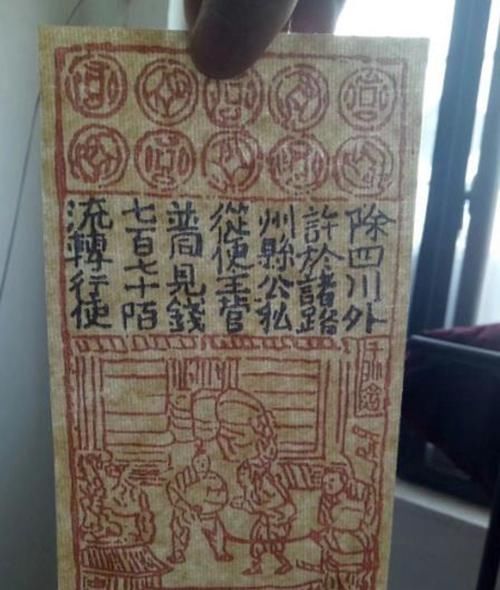 除四川外
許於諸路
州縣公私
從便主管
普同見錢
七百七十陌
流轉行使
千斯倉